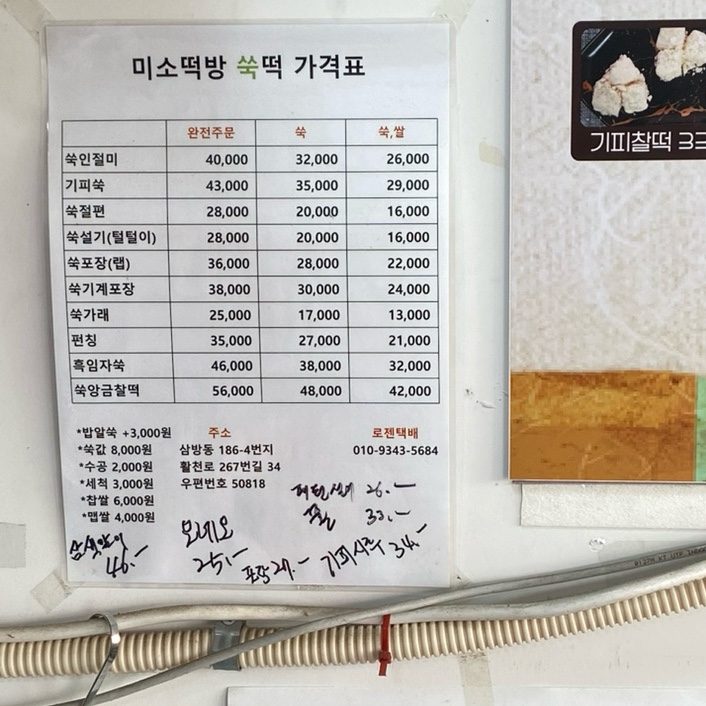 미소떡방 쑥떡 가격표
완전주문 쑥 쑥,쌀
쑥인절미 40,000 32,000 26,000
기피쑥 43,000 35,000 29,000
쑥절편 28,000 20,000 16,000
쑥설기(털털이) 28,000 20,000 16,000
쑥포장(랩) 36,000 28,000 22,000
쑥기계포장 38,000 30,000 24,000
쑥가래 25,000 17,000 13,000
편칭 35,000 27,000 21,000
흑임자쑥 46,000 38,000 32,000
쑥앙금찰떡 56,000 48,000 42,000
*밥알쑥 +3,000원
*쑥값 8,000원
*수공 2,000원
*세척 3,000원
*찹쌀 6,000원
*맵쌀 4,000원
주소
삼방동 186-4번지
활천로 267번길 34
우편번호 50818
로젠택배
010-9343-5684
26.-
33.-
46.-
모네오
25.-
포장 27.-
34.-
기피찰떡 33